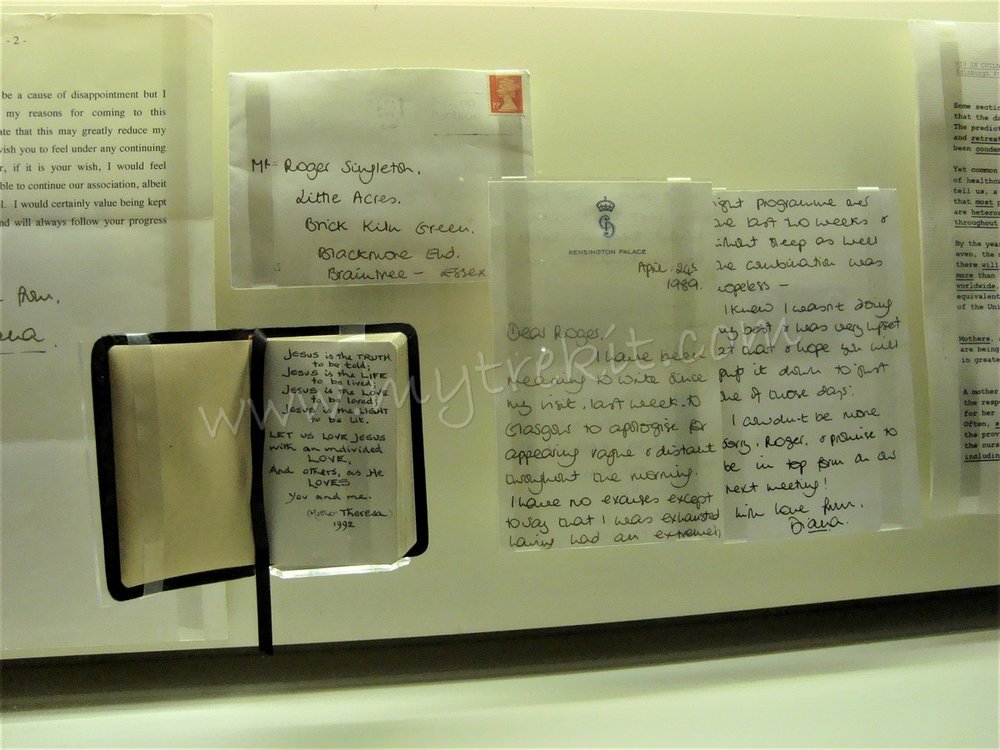 - 2 -
be a cause of disappointment but I
my reasons for coming to this
ate that this may greatly reduce my
wish you to feel under any continuing
r, if it is your wish, I would feel
ble to continue our association, albeit
l. I would certainly value being kept
and will always follow your progress
from,
ana
19p
Mr Roger Singleton.
Little Acres.
Brick Kiln Green.
Blackmore End.
Braintree - ESSEX
JESUS is the TRUTH
to be told;
JESUS is the LIFE
to be lived;
JESUS is the LOVE
to be loved;
JESUS is the LIGHT
to be lit.
LET US LOVE JESUS
with an undivided
LOVE,
And others, as He
LOVES
You and me.
(Mother Theresa)
1992
KENSINGTON PALACE
April
1989.
Dear Roger,
I have been
meaning to write since
my visit, last week, to
Glasgow to apologise for
appearing vague & distant
throughout the morning.
I have no excuses except
to say that I was exhausted
having had an extremely
ight programme over
the last 20 weeks &
without sleep as well
the combination was
hopeless -
I knew I wasn't doing
my best & was very upset
at that & hope you will
put it down to just
one of those days.
I couldn't be more
sorry, Roger, & promise to
be in top form on our
next meeting!
with love from,
Diana.
HIV IN CHILD
Edinburgh
Some sectio
that the da
The predict
and retreat
been conde
Yet common
of healthca
tell us, a
that most
are heteros
throughout
By the year
even, the n
there will
more than
worldwide,
equivalent
of the Unit
Mothers,
are being
in greate
A mother
the resp
for her
Often,
the prov
the nurs
includin
www.mytrekit.com